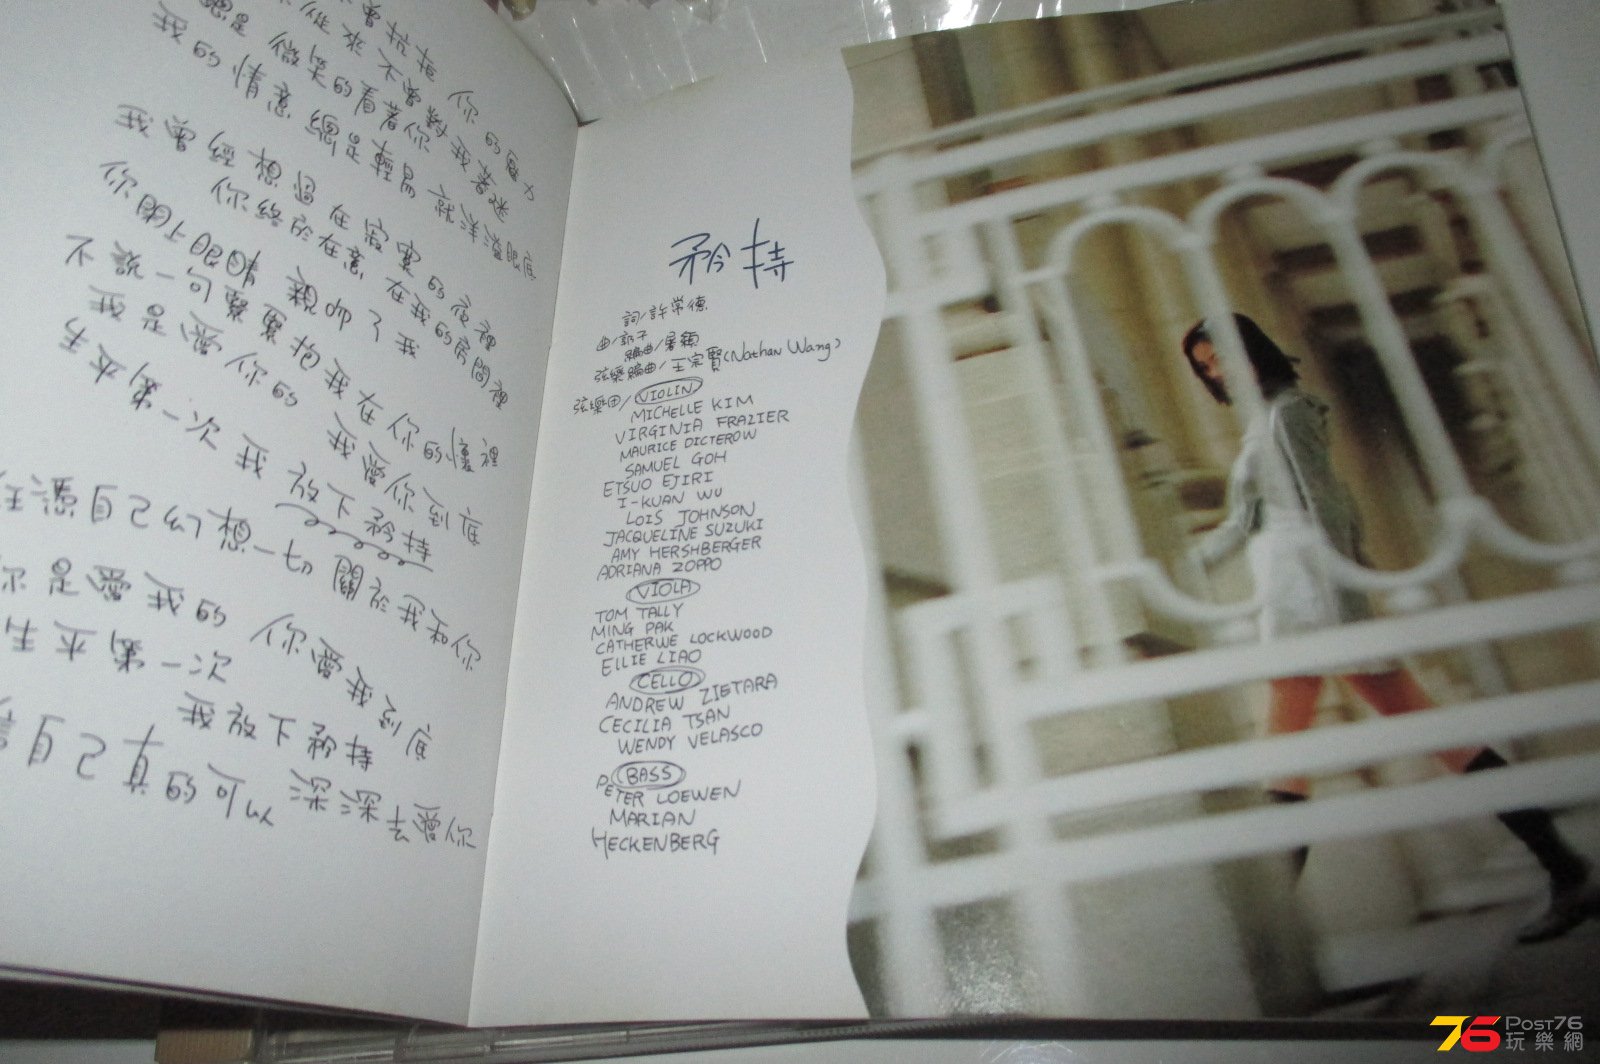 曾抗拒 你的魅力
來不曾對我著迷
總是 微笑的看著你
我的情意 總是輕易 就洋溢眼底
我曾經想過在寂寞的夜裡
你終於在意 在我的房間裡
你閉上眼睛 親吻了我
不說一句 緊緊抱我在你的懷裡
我是愛你的 我愛你到底
第一次 我放下矜持
想一切關於我和你
我是愛你的 我愛你到底
第一次
我放下矜持
自己真的可以深深去愛你
矜持
詞/許常德
曲/郭子
編曲/屠穎
弦樂編曲/王宗賢(Nathan Wang)
弦樂团/VIOLIN
MICHELLE KIM
VIRGINIA FRAZIER
MAURICE DICTEROW
SAMUEL GOH
ETSUO EJIRI
I-KUAN WU
LOIS JOHNSON
JACQUELINE SUZUKI
AMY HERSHBERGER
ADRIANA ZOPPO
VIOLA
TOM TALLY
MING PAK
CATHERWE LOCKWOOD
ELLIE LIAO
CELLO
ANDREW ZIETARA
CECILIA TSAN
WENDY VELASCO
BASS
PETER LOEWEN
MARIAN
HECKENBERG
76 Post76
玩樂網